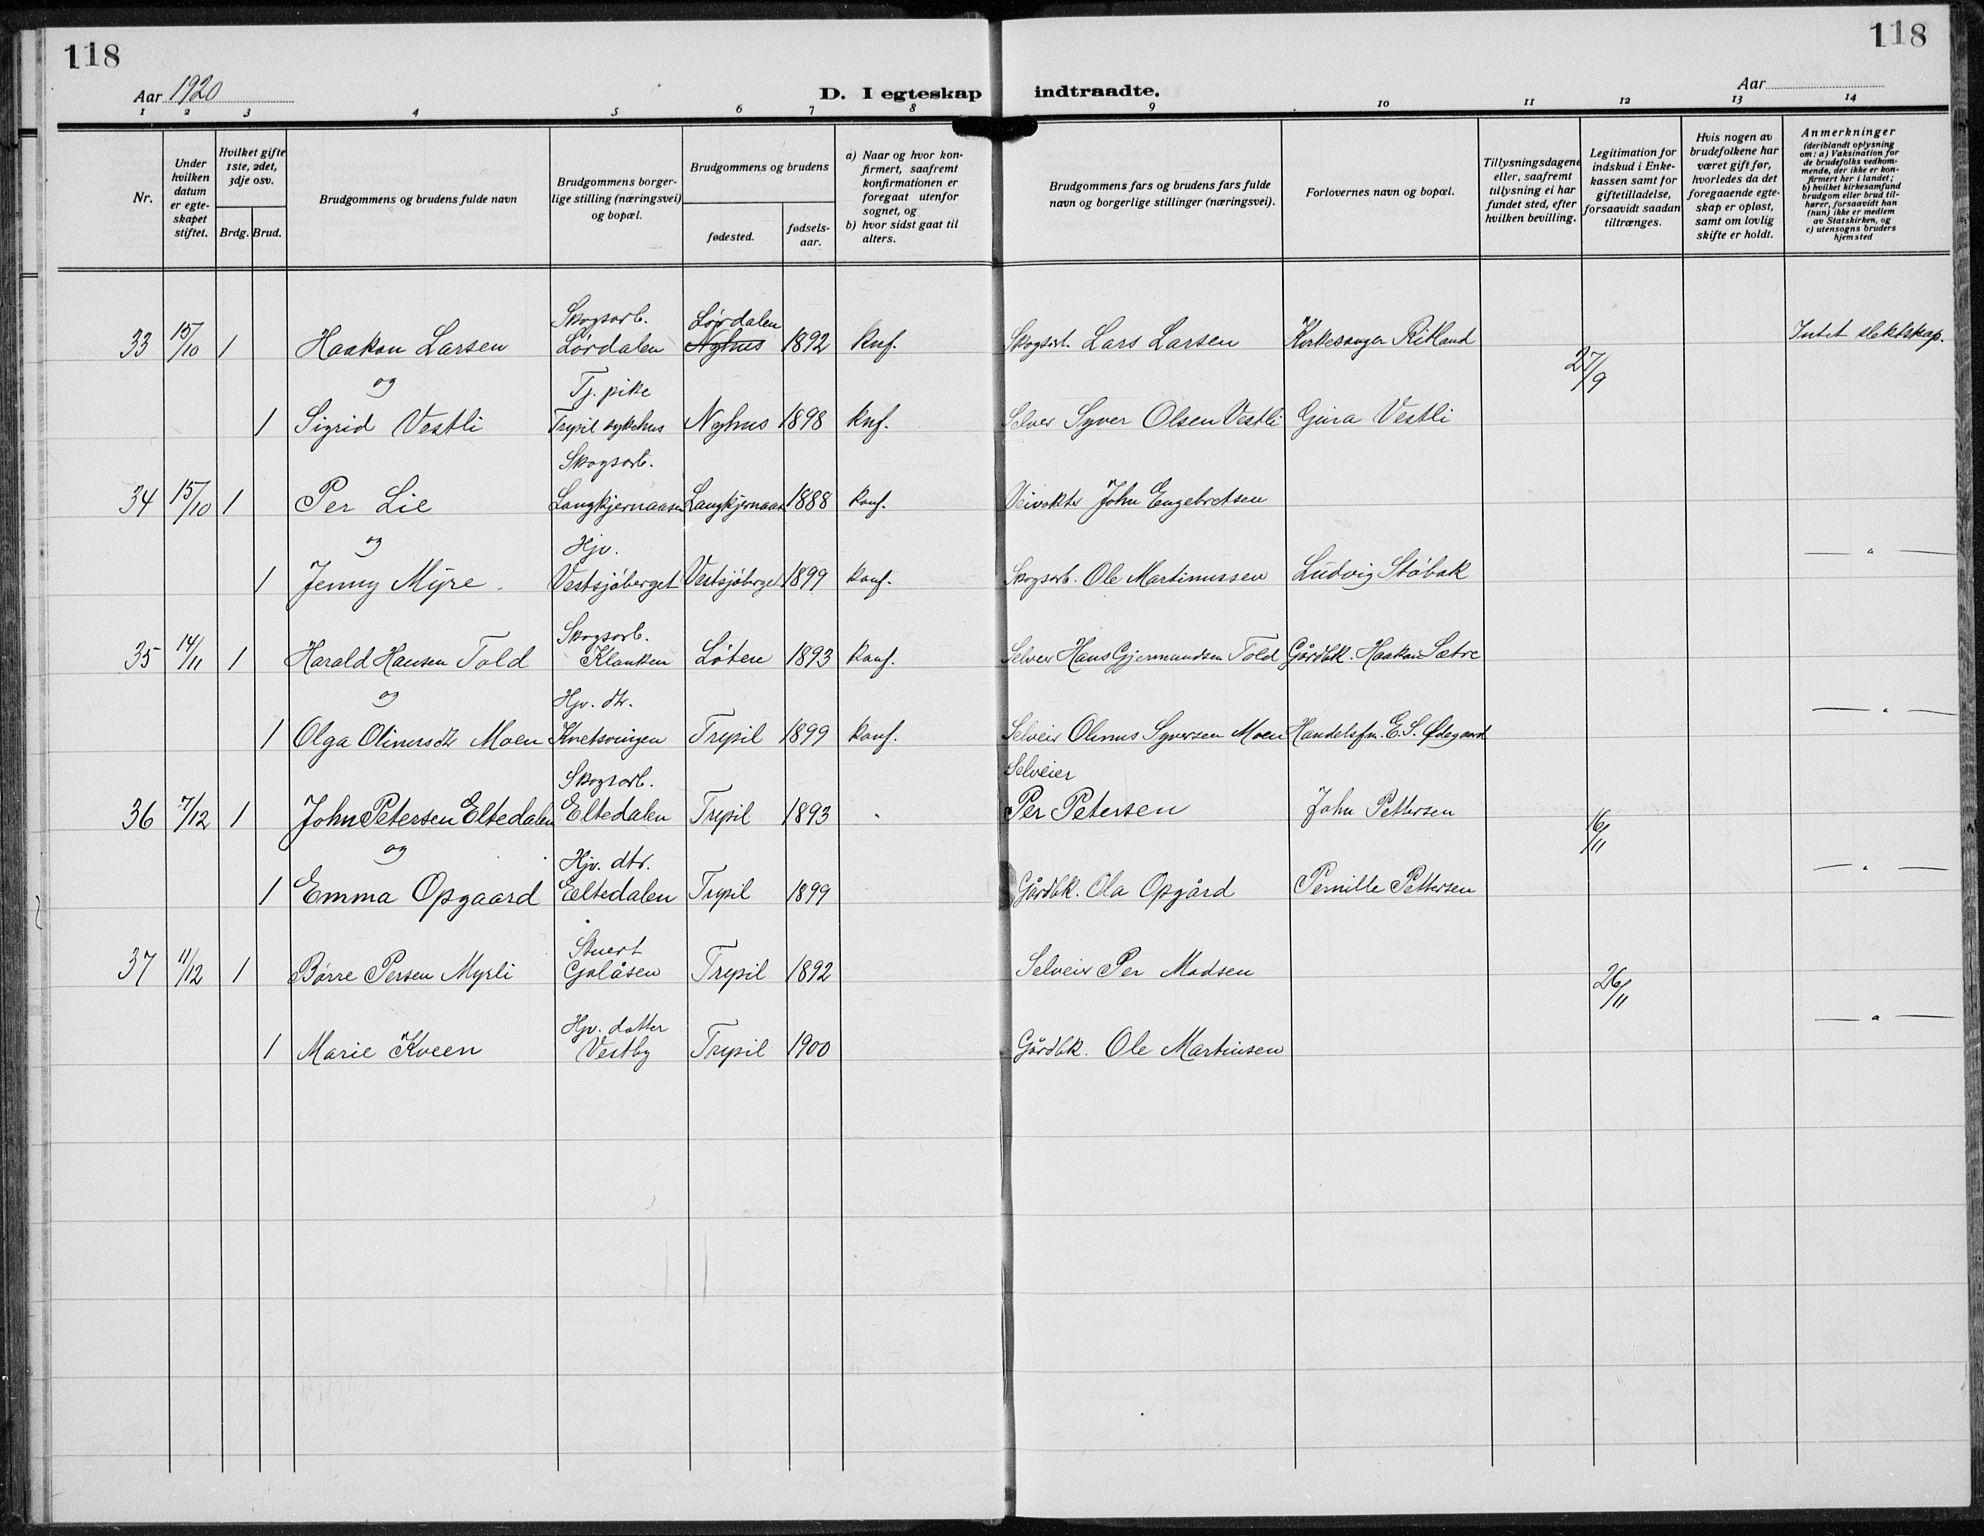 118
118
Aar 1920
D. I egteskap indtraadte.
Aar
1 2 3 4 5 6 7 8 9 10 11 12 13 14
Nr.
Under hvilken datum er egteskapet stiftet.
Hvilket gifte 1ste, 2det, 3dje osv.
Brdg. Brud.
Brudgommens og brudens fulde navn
Brudgommens borgerlige stilling (næringsvei) og bopæl.
Brudgommens og brudens
fødested.
fødselsaar.
a) Naar og hvor konfirmert, saafremt konfirmationen er foregaat utenfor sognet, og
b) hvor sidst gaat til alters.
Brudgommens fars og brudens fars fulde navn og borgerlige stillinger (næringsvei).
Forlovernes navn og bopæl.
Tillysningsdagene eller, saafremt tillysning ei har fundet sted, efter hvilken bevilling.
Legitimation for indskud i Enkekassen samt for giftetilladelse, forsaavidt saadan tiltrænges.
Hvis nogen av brudefolkene har været gift før, hvorledes da det foregaaende egteskap er opløst, samt om lovlig skifte er holdt.
Anmerkninger
(deriblandt oplysning om: a) Vaksination for de brudefolks vedkommende, der ikke er konfirmert her i landet; b) hvilket kirkesamfund brudgom eller brud tilhører, forsaavidt han (hun) ikke er medlem av Statskirken, og c) utensogns bruders hjemsted
Skogsarb. Lørdalen
33 15/10 1 Haakon Larsen Lørdalen Nyhus 1892 Knf. Skogsarb. Lars Larsen Kirkesanger Ritland Intet slektskap.
og Tj. pike 27/9
1 Sigrid Vestli Trysil sykehus Nyhus 1898 Knf. Selveier Syver Olsen Vestli Gina Vestli
Skogsarb.
34 15/10 1 Per Lie Langkjernaasen Langkjernaas 1888 Konf. Veivokter John Engebretsen
og Hjv. — " —
1 Jenny Myre Vestsjøberget Vestsjøberget 1899 Konf. Skogsarb. Ole Martinussen Ludvig Støbak
Skogsarb.
35 14/11 1 Harald Hansen Told Klanken Løten 1893 Konf. Selveier Hans Gjermundsen Told Gårdbk. Haakon Sætre
og Hjv. dtr. — " —
1 Olga Olinusdtr Moen Knetsvingen Trysil 1899 Konf. Selveier Olinus Syversen Moen Handelsfm. E. S. Ødegaard
Skogsarb. Selveier
36 7/12 1 John Petersen Eltedalen Eltedalen Trysil 1893 Per Petersen John Pettersen
og Hjv. dtr. 16/11 — " —
1 Emma Opgaard Eltedalen Trysil 1899 Gårdbk. Ola Opgård Pernille Pettersen
Stuert
37 11/12 1 Børre Persen Myrli Galåsen Trysil 1892 Selveier Per Madsen 26/11
Hjv. datter — " —
1 Marie Kveen Vestby Trysil 1900 Gårdbk. Ole Martinsen